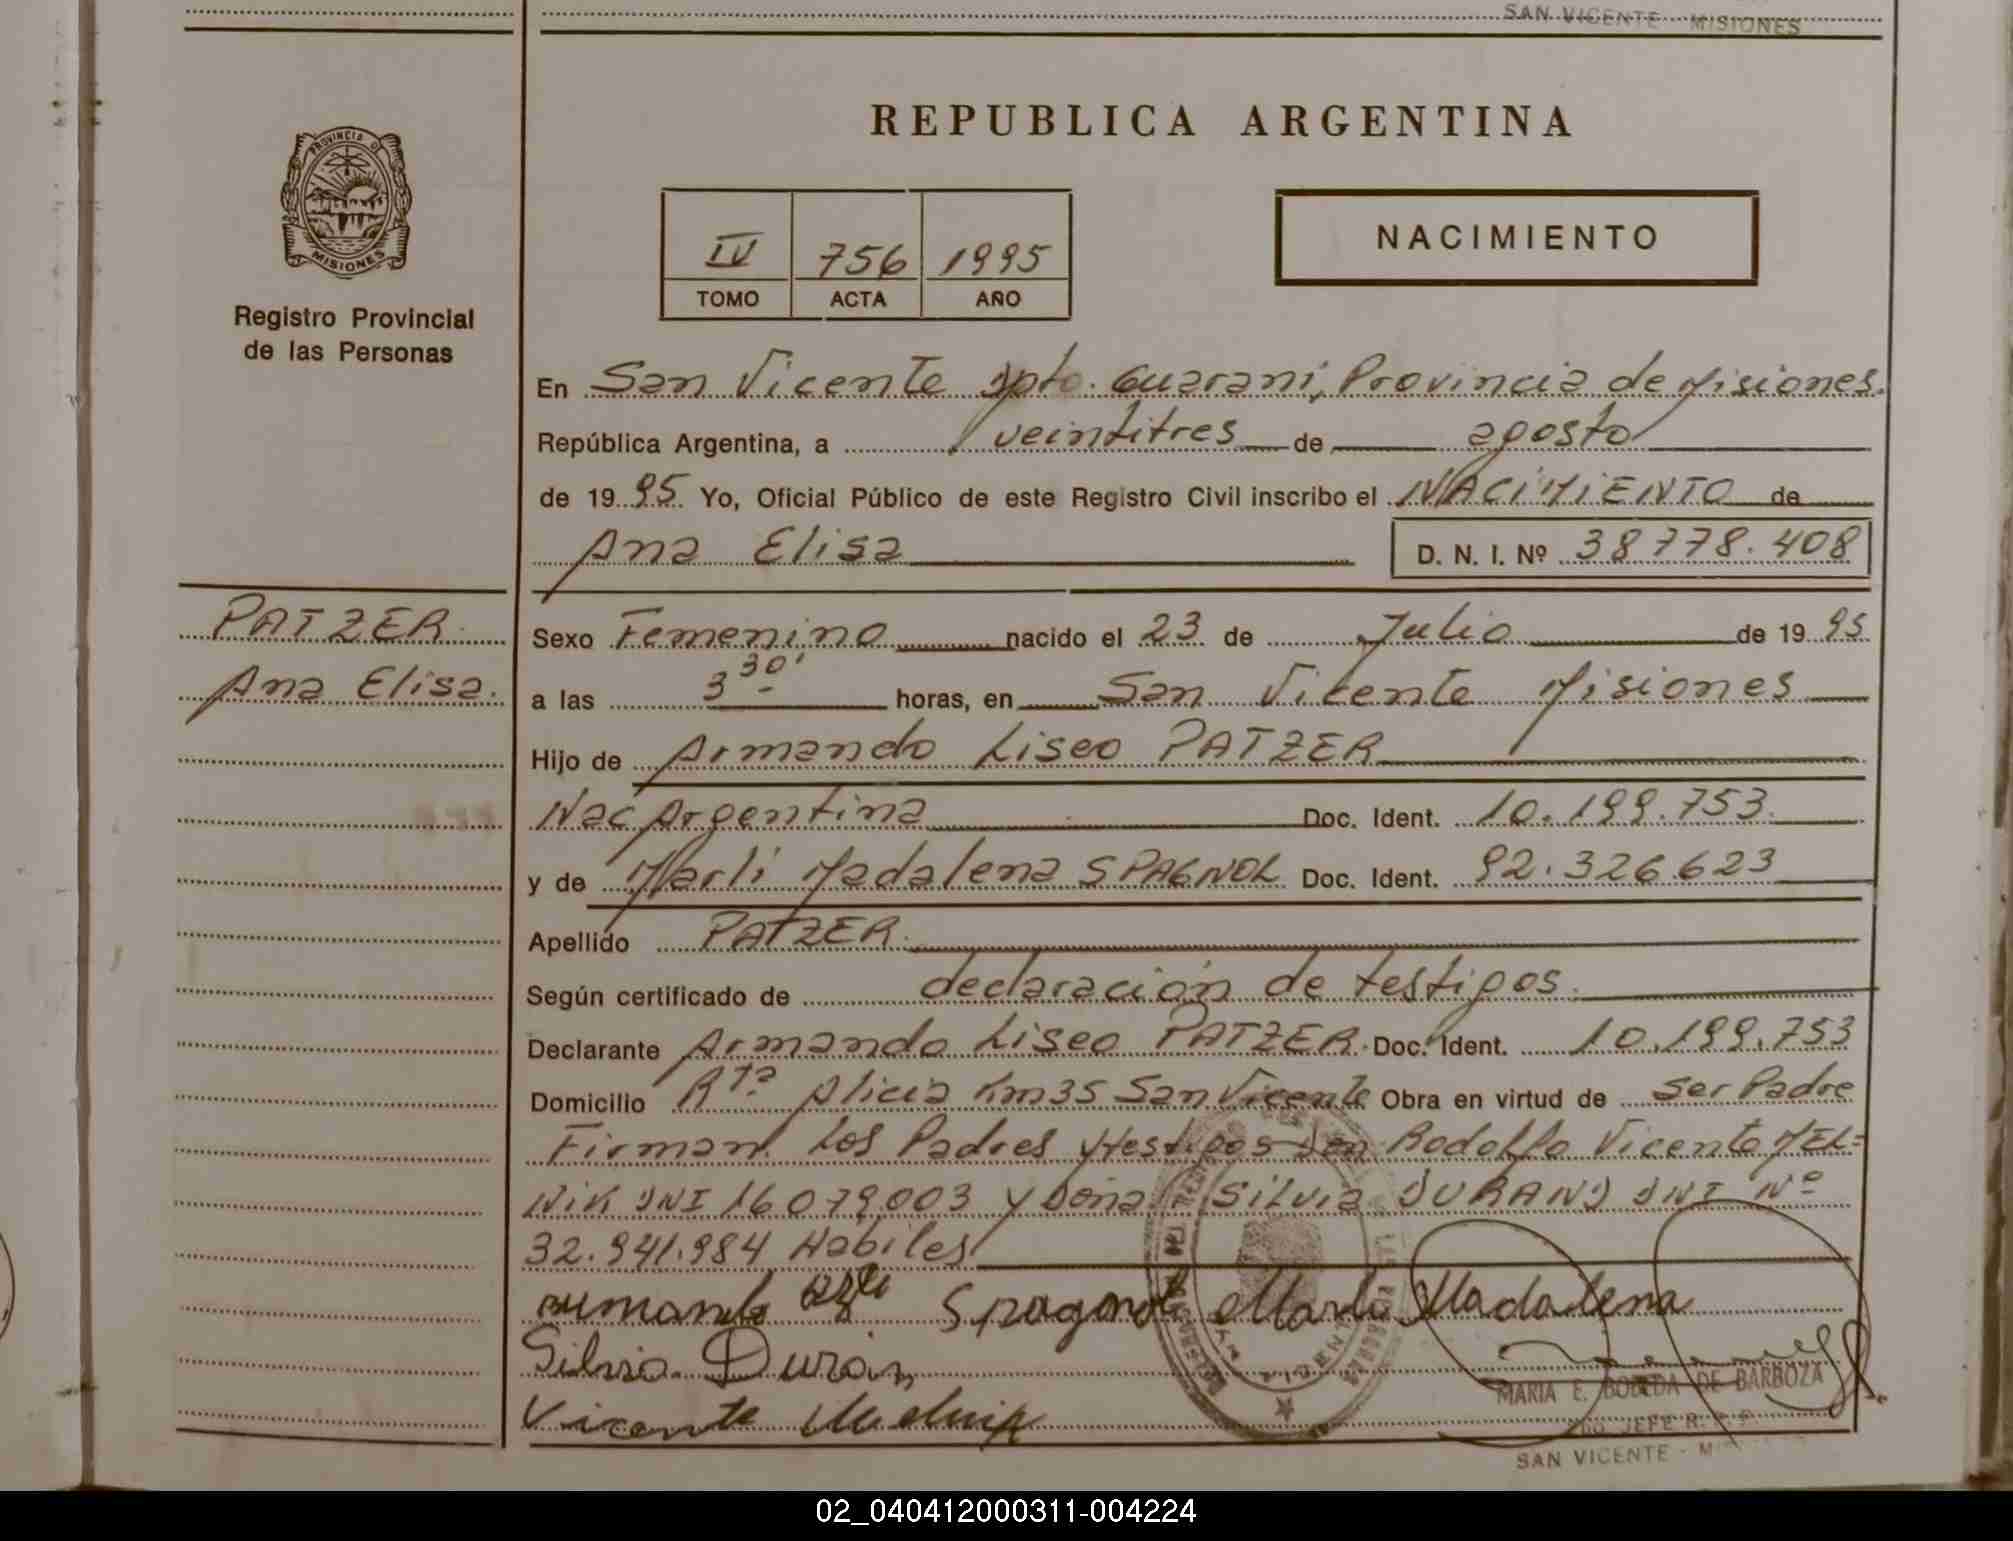 SAN VICENTE - MISIONES
REPUBLICA ARGENTINA
PROVINCIA D
MISIONES
NACIMIENTO
IV 756 1995
TOMO ACTA AÑO
Registro Provincial
de las Personas
En San Vicente Dpto. Guaraní, Provincia de Misiones.
República Argentina, a veintitres de agosto
de 1995 Yo, Oficial Público de este Registro Civil inscribo el NACIMIENTO de
Ana Elisa D. N. I. Nº 38778.408
PATZER
Ana Elisa.
Sexo Femenino nacido el 23 de Julio de 1995
a las 3 30' horas, en San Vicente Misiones
Hijo de Armando Liseo PATZER
Nac Argentina Doc. Ident. 10.199.753.
y de Marli Madalena SPAGNOL Doc. Ident. 92.326.623
Apellido PATZER.
Según certificado de declaración de testigos.
Declarante Armando Liseo PATZER. Doc. Ident. 10.199.753
Domicilio Rta. Alicia Km35 San Vicente Obra en virtud de ser Padre
Firman Los Padres y testigos Don Rodolfo Vicente MEL=
NIK DNI 16079003 y Doña Silvia DURAND DNI Nº
32.941.984 Habiles
Marli Madalena
Silvia Duran
Vicente Melnik
MARIA E. BOBEDA DE BARBOZA
JEFE R. P. P.
SAN VICENTE - M
02_040412000311-004224